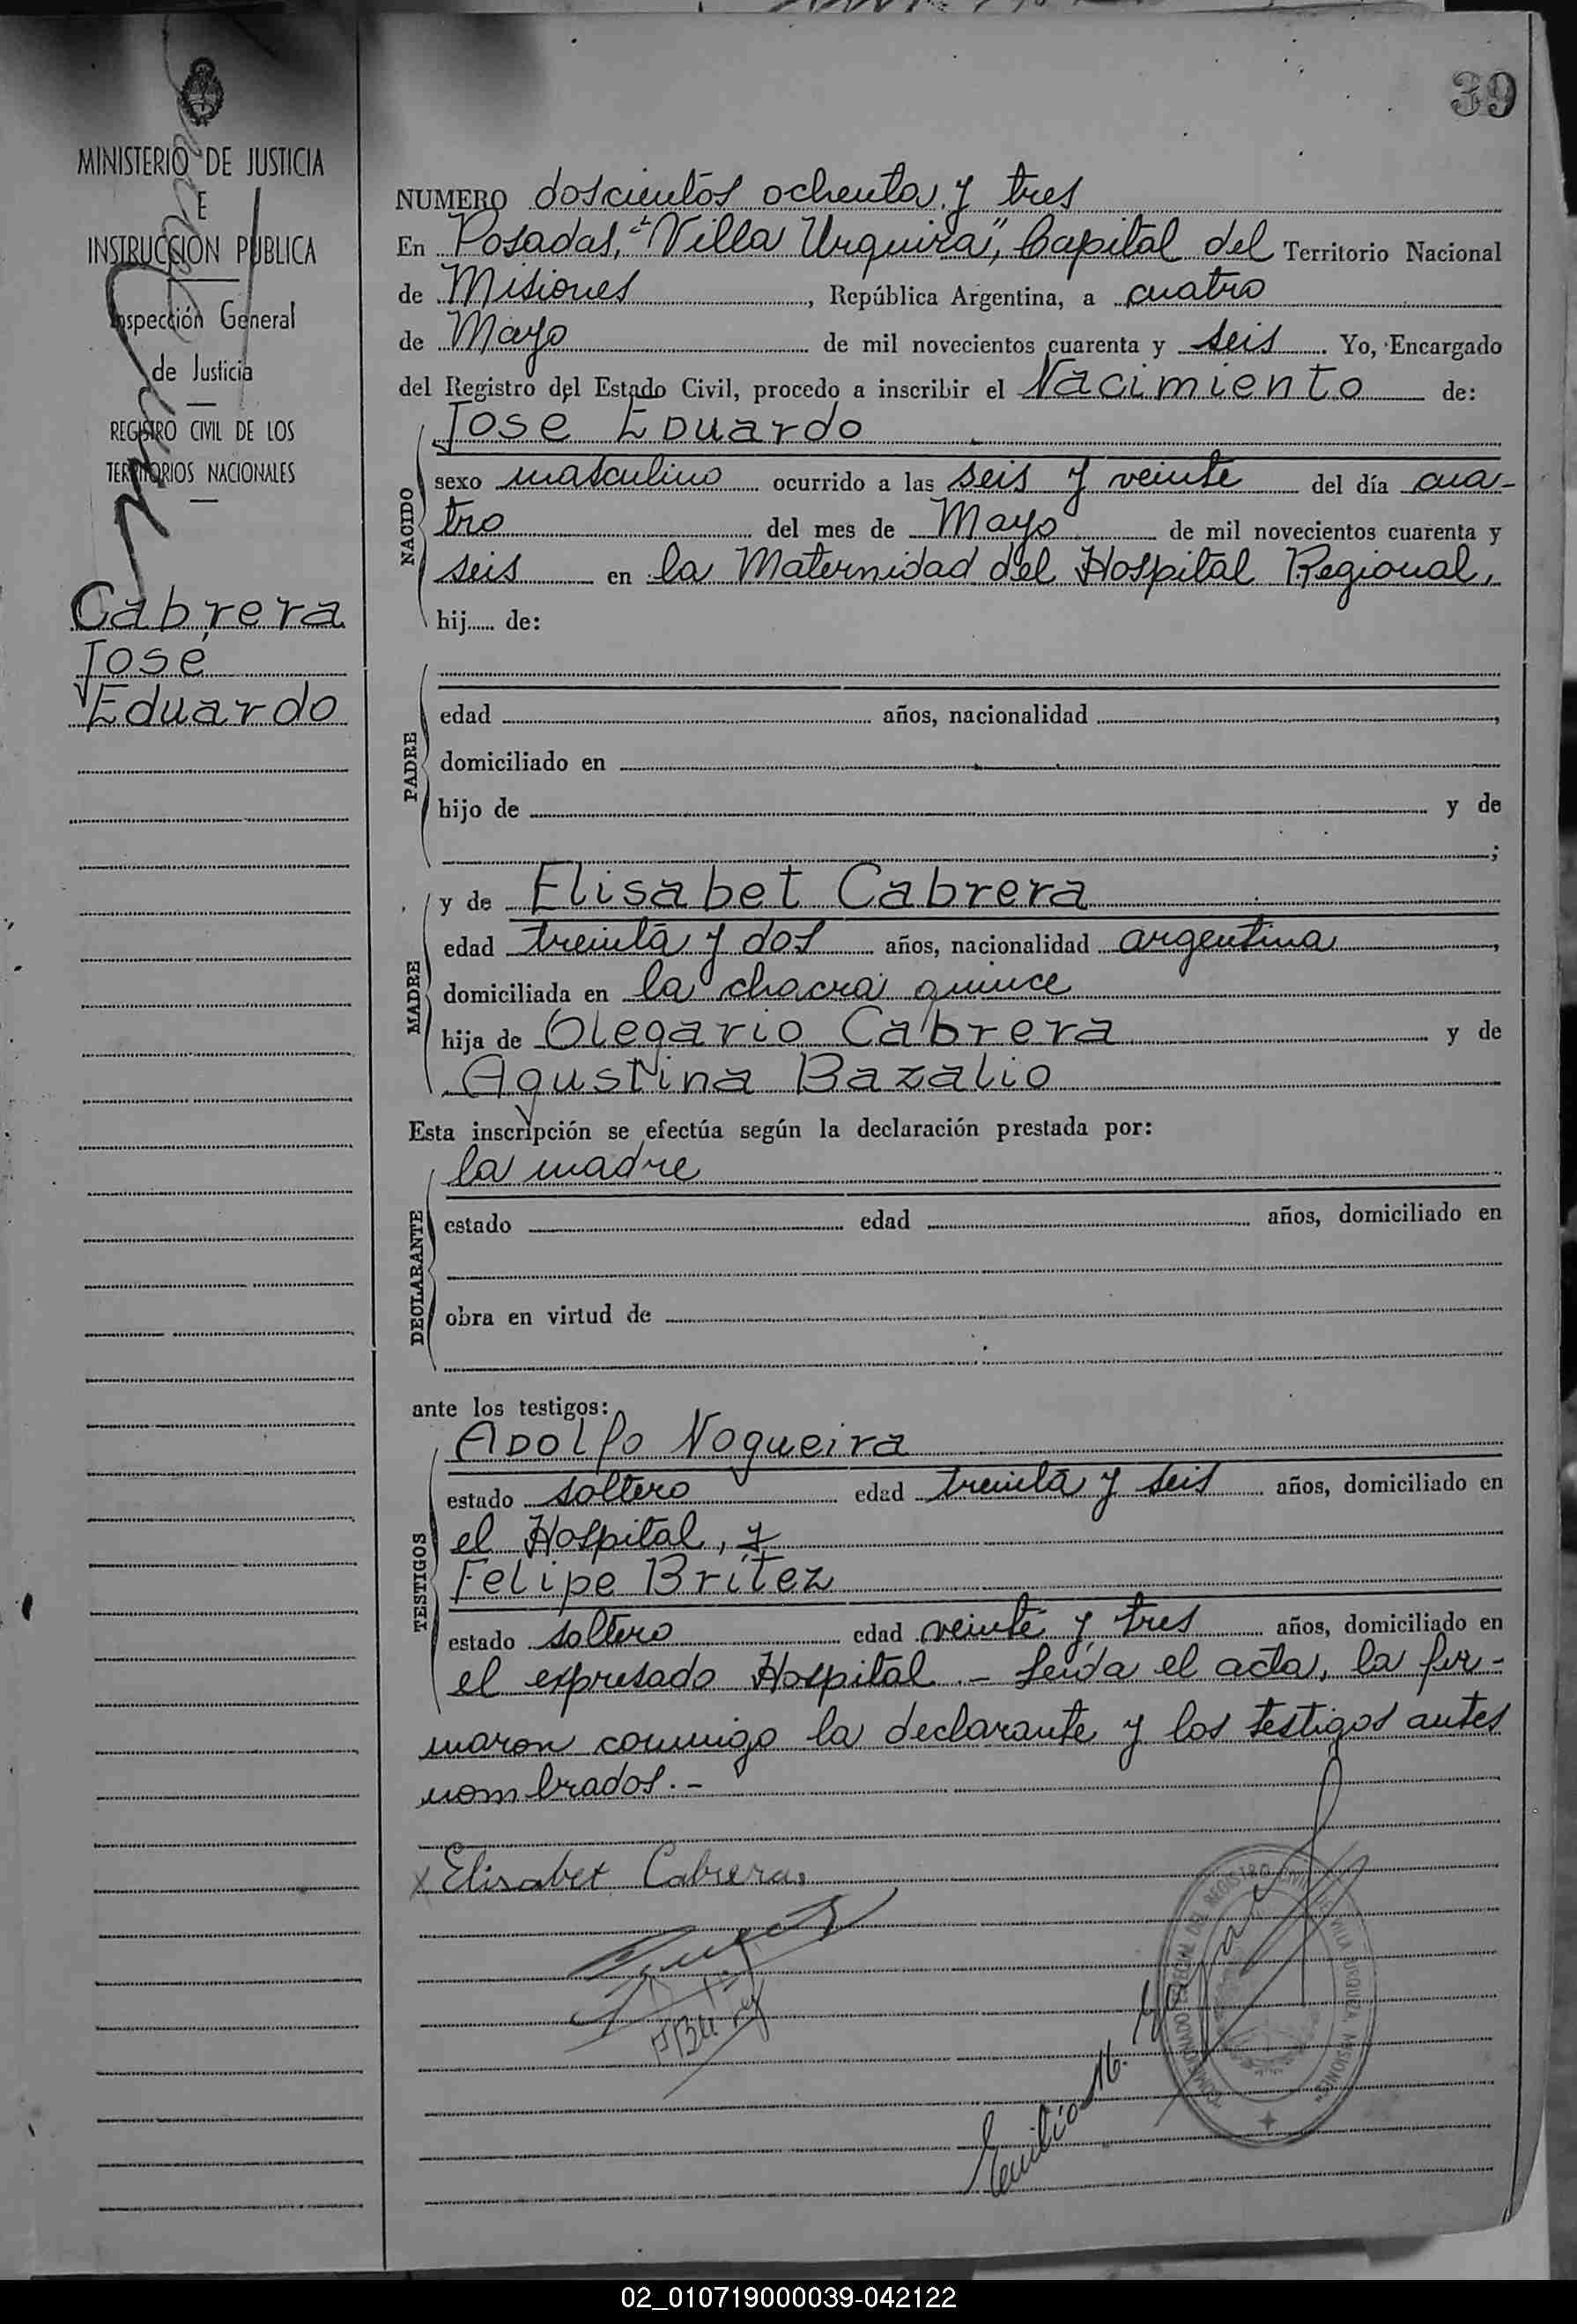 39
MINISTERIO DE JUSTICIA
E
INSTRUCCION PUBLICA
Inspección General
de Justicia
REGISTRO CIVIL DE LOS
TERRITORIOS NACIONALES
Cabrera
José
Eduardo
NUMERO doscientos ochenta y tres
En Posadas, "Villa Urquiza", Capital del Territorio Nacional
de Misiones, República Argentina, a cuatro
de Mayo de mil novecientos cuarenta y seis. Yo, Encargado
del Registro del Estado Civil, procedo a inscribir el Nacimiento de:
NACIDO
José Eduardo
sexo masculino ocurrido a las seis y veinte del día cua-
tro del mes de Mayo de mil novecientos cuarenta y
seis en la Maternidad del Hospital Regional,
hij..... de:
PADRE
edad años, nacionalidad ,
domiciliado en
hijo de y de
;
MADRE
y de Elisabet Cabrera
edad treinta y dos años, nacionalidad argentina,
domiciliada en la chacra quince
hija de Olegario Cabrera y de
Agustina Bazalio
Esta inscripción se efectúa según la declaración prestada por:
DECLARANTE
la madre
estado edad años, domiciliado en
obra en virtud de
ante los testigos:
TESTIGOS
Adolfo Nogueira
estado soltero edad treinta y seis años, domiciliado en
el Hospital, y
Felipe Brítez
estado soltero edad veinte y tres años, domiciliado en
el expresado Hospital.- Leída el acta, la fir-
maron conmigo la declarante y los testigos antes
nombrados.-
x Elisabet Cabrera
Emilio M.
COMISIONADO ESPECIAL DEL REGISTRO CIVIL VILLA URQUIZA MISIONES
02_010719000039-042122